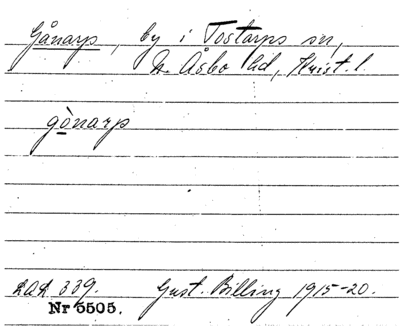 Gånarp, by i Tostarps sn,
N. Åsbo hd, Krist. l.
gònarp
LAL 339. Gust. Billing 1915-20.
Nr 5505.